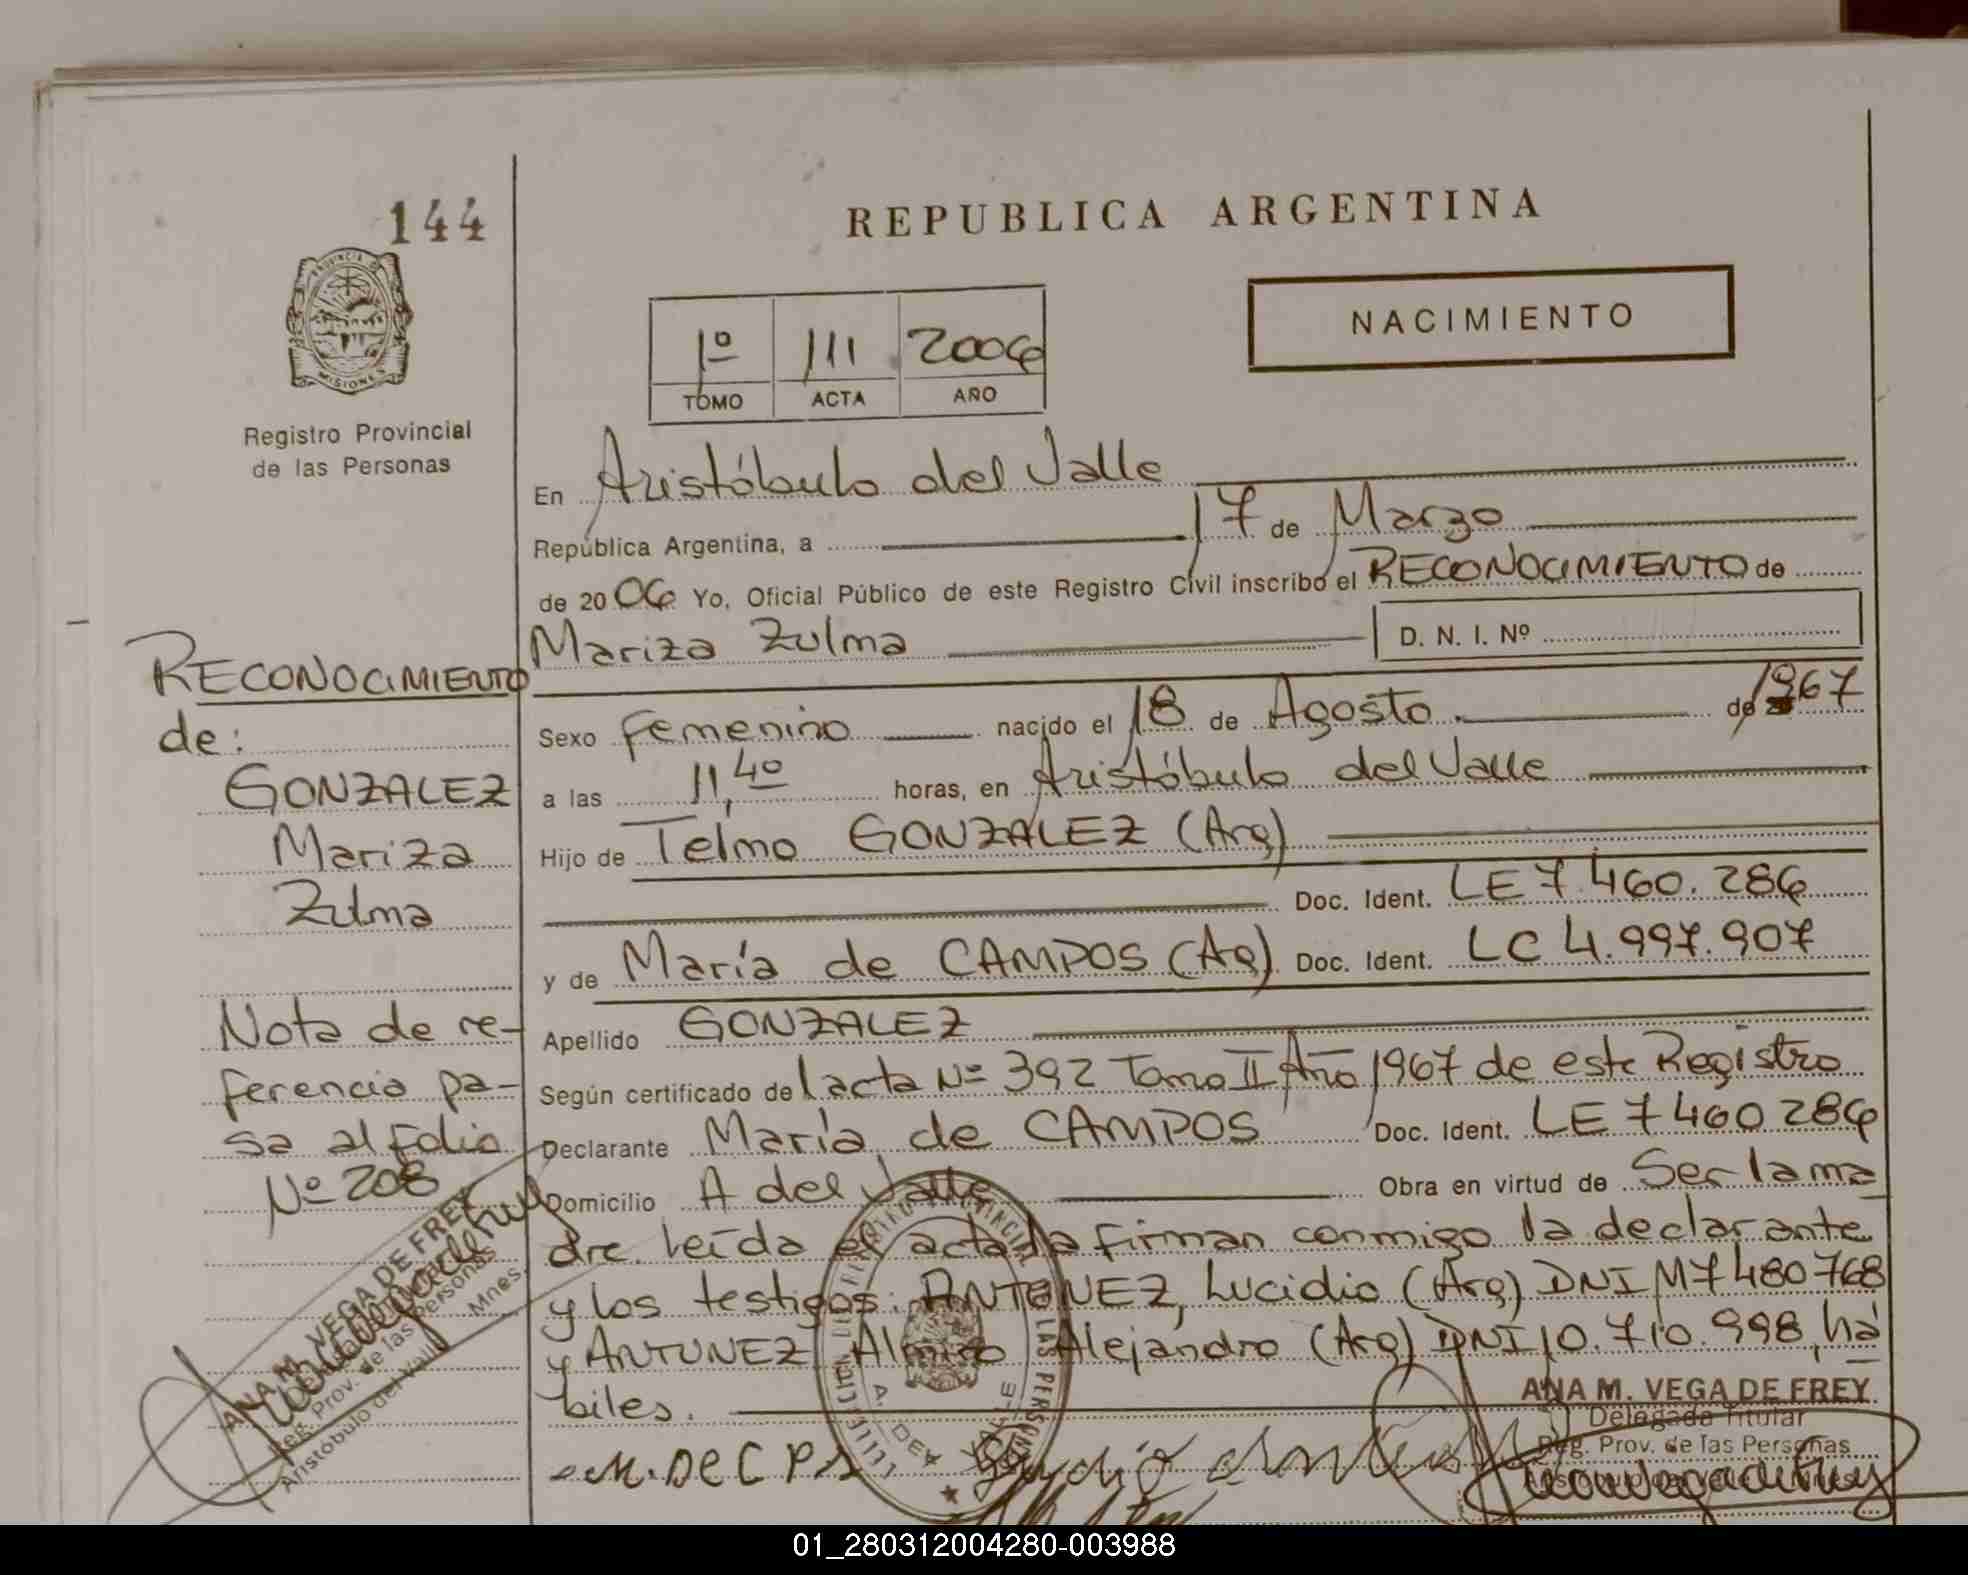 144
REPUBLICA ARGENTINA
PROVINCIA DE
MISIONES
Registro Provincial
de las Personas
1º 111 2006
TOMO ACTA AÑO
NACIMIENTO
En Aristóbulo del Valle
República Argentina, a 17 de Marzo
de 2006 Yo, Oficial Público de este Registro Civil inscribo el RECONOCIMIENTO de
Mariza Zulma D. N. I. Nº
Sexo femenino nacido el 18 de Agosto de 1967
a las 11,40 horas, en Aristóbulo del Valle
Hijo de Telmo GONZALEZ (Arg)
Doc. Ident. LE 7.460.286
y de María de CAMPOS (Ag) Doc. Ident. LC 4.997.907
Apellido GONZALEZ
Según certificado de l acta Nº 392 Tomo II Año 1967 de este Registro
Declarante María de CAMPOS Doc. Ident. LE 7460286
Domicilio A del Valle Obra en virtud de Ser la ma
dre. leída el acta la firman conmigo la declarante
y los testigos: ANTUNEZ, Lucidio (Arg) DNI M7480768
y ANTUNEZ Almiro Alejandro (Arg) DNI 10.710.998, há
biles.
RECONOCIMIENTO
de:
GONZALEZ
Mariza
Zulma
Nota de re-
ferencia pa-
sa al folio
Nº 208
ANA M. VEGA DE FREY
Reg. Prov. de las Personas
Aristóbulo del Valle Mnes.
A. DEL VALLE
ANA M. VEGA DE FREY
Delegada Titular
Reg. Prov. de las Personas
01_280312004280-003988